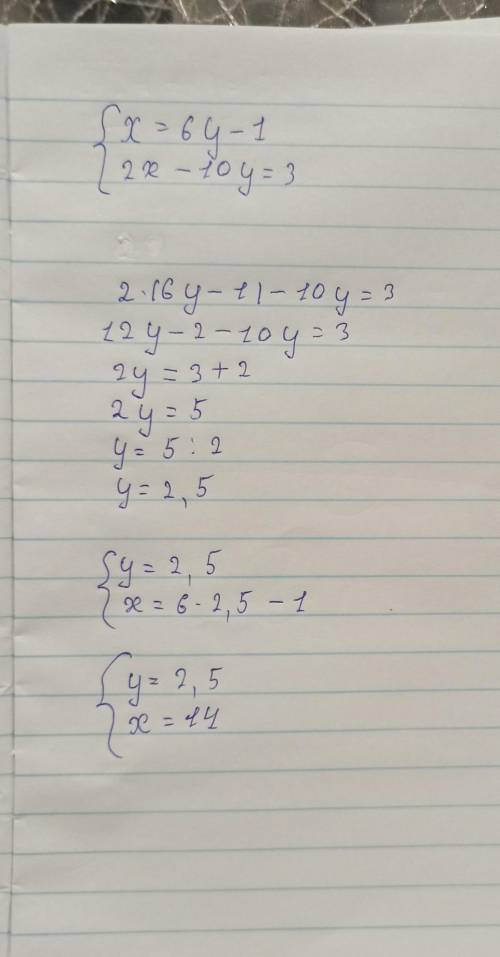 { x = 6y - 1
{ 2x - 10y = 3
2·(6y - 1) - 10y = 3
12y - 2 - 10y = 3
2y = 3 + 2
2y = 5
y = 5 : 2
y = 2,5
{ y = 2,5
{ x = 6 · 2,5 - 1
{ y = 2,5
{ x = 14